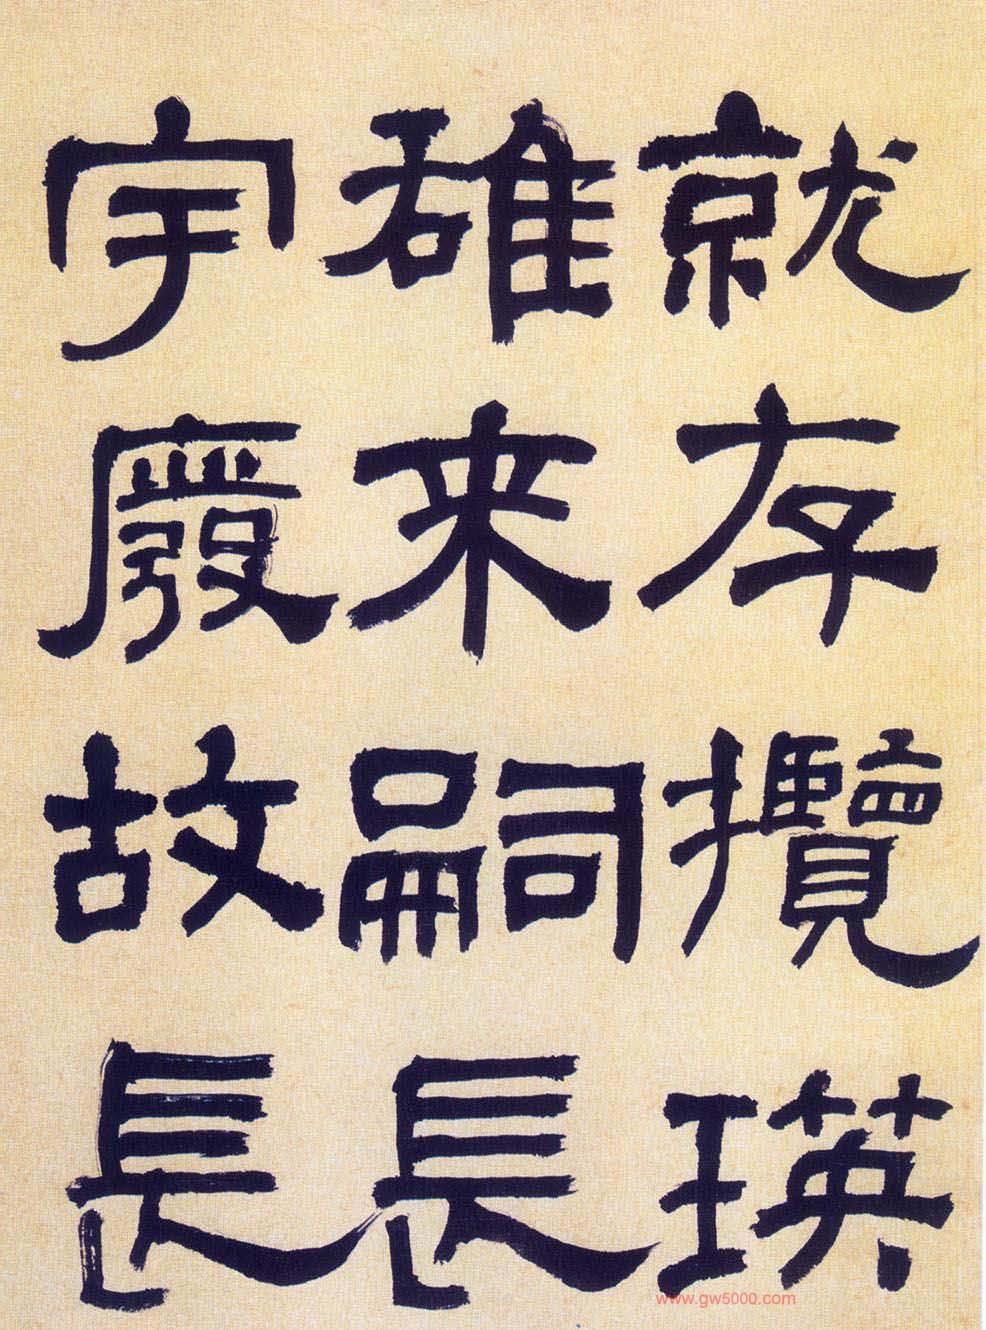 就存攬瑛
雄来嗣長
宇廢故長
www.gw5000.com